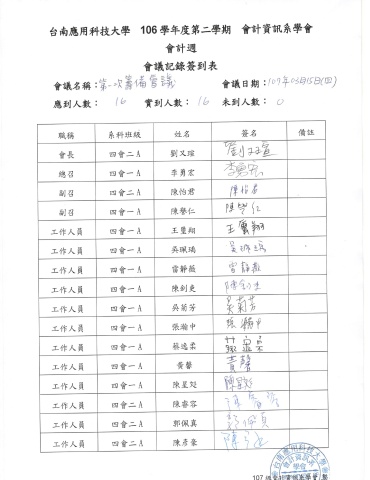 台南應用科技大學 106 學年度第二學期 會計資訊系學會
會計週
會議記錄簽到表
會議名稱：第一次籌備會議 會議日期：107年03月15日(四)
應到人數：16 實到人數：16 未到人數：0
職稱 系科班級 姓名 簽名 備註
會長 四會二A 劉又瑄 劉又瑄
總召 四會一A 李勇宏 李勇宏
副召 四會二A 陳怡君 陳怡君
副召 四會一A 陳譽仁 陳譽仁
工作人員 四會一A 王璽翔 王璽翔
工作人員 四會一A 吳珮瑀 吳珮瑀
工作人員 四會一A 雷靜薇 雷靜薇
工作人員 四會一A 陳劍吏
工作人員 四會一A 吳菊芳 吳菊芳
工作人員 四會一A 張瀚中 張瀚中
工作人員 四會一A 蔡逸柔
工作人員 四會一A 黃馨 黃馨
工作人員 四會一A 陳星彣
工作人員 四會二A 陳睿容
工作人員 四會二A 郭佩真
工作人員 四會二A 陳彥豪